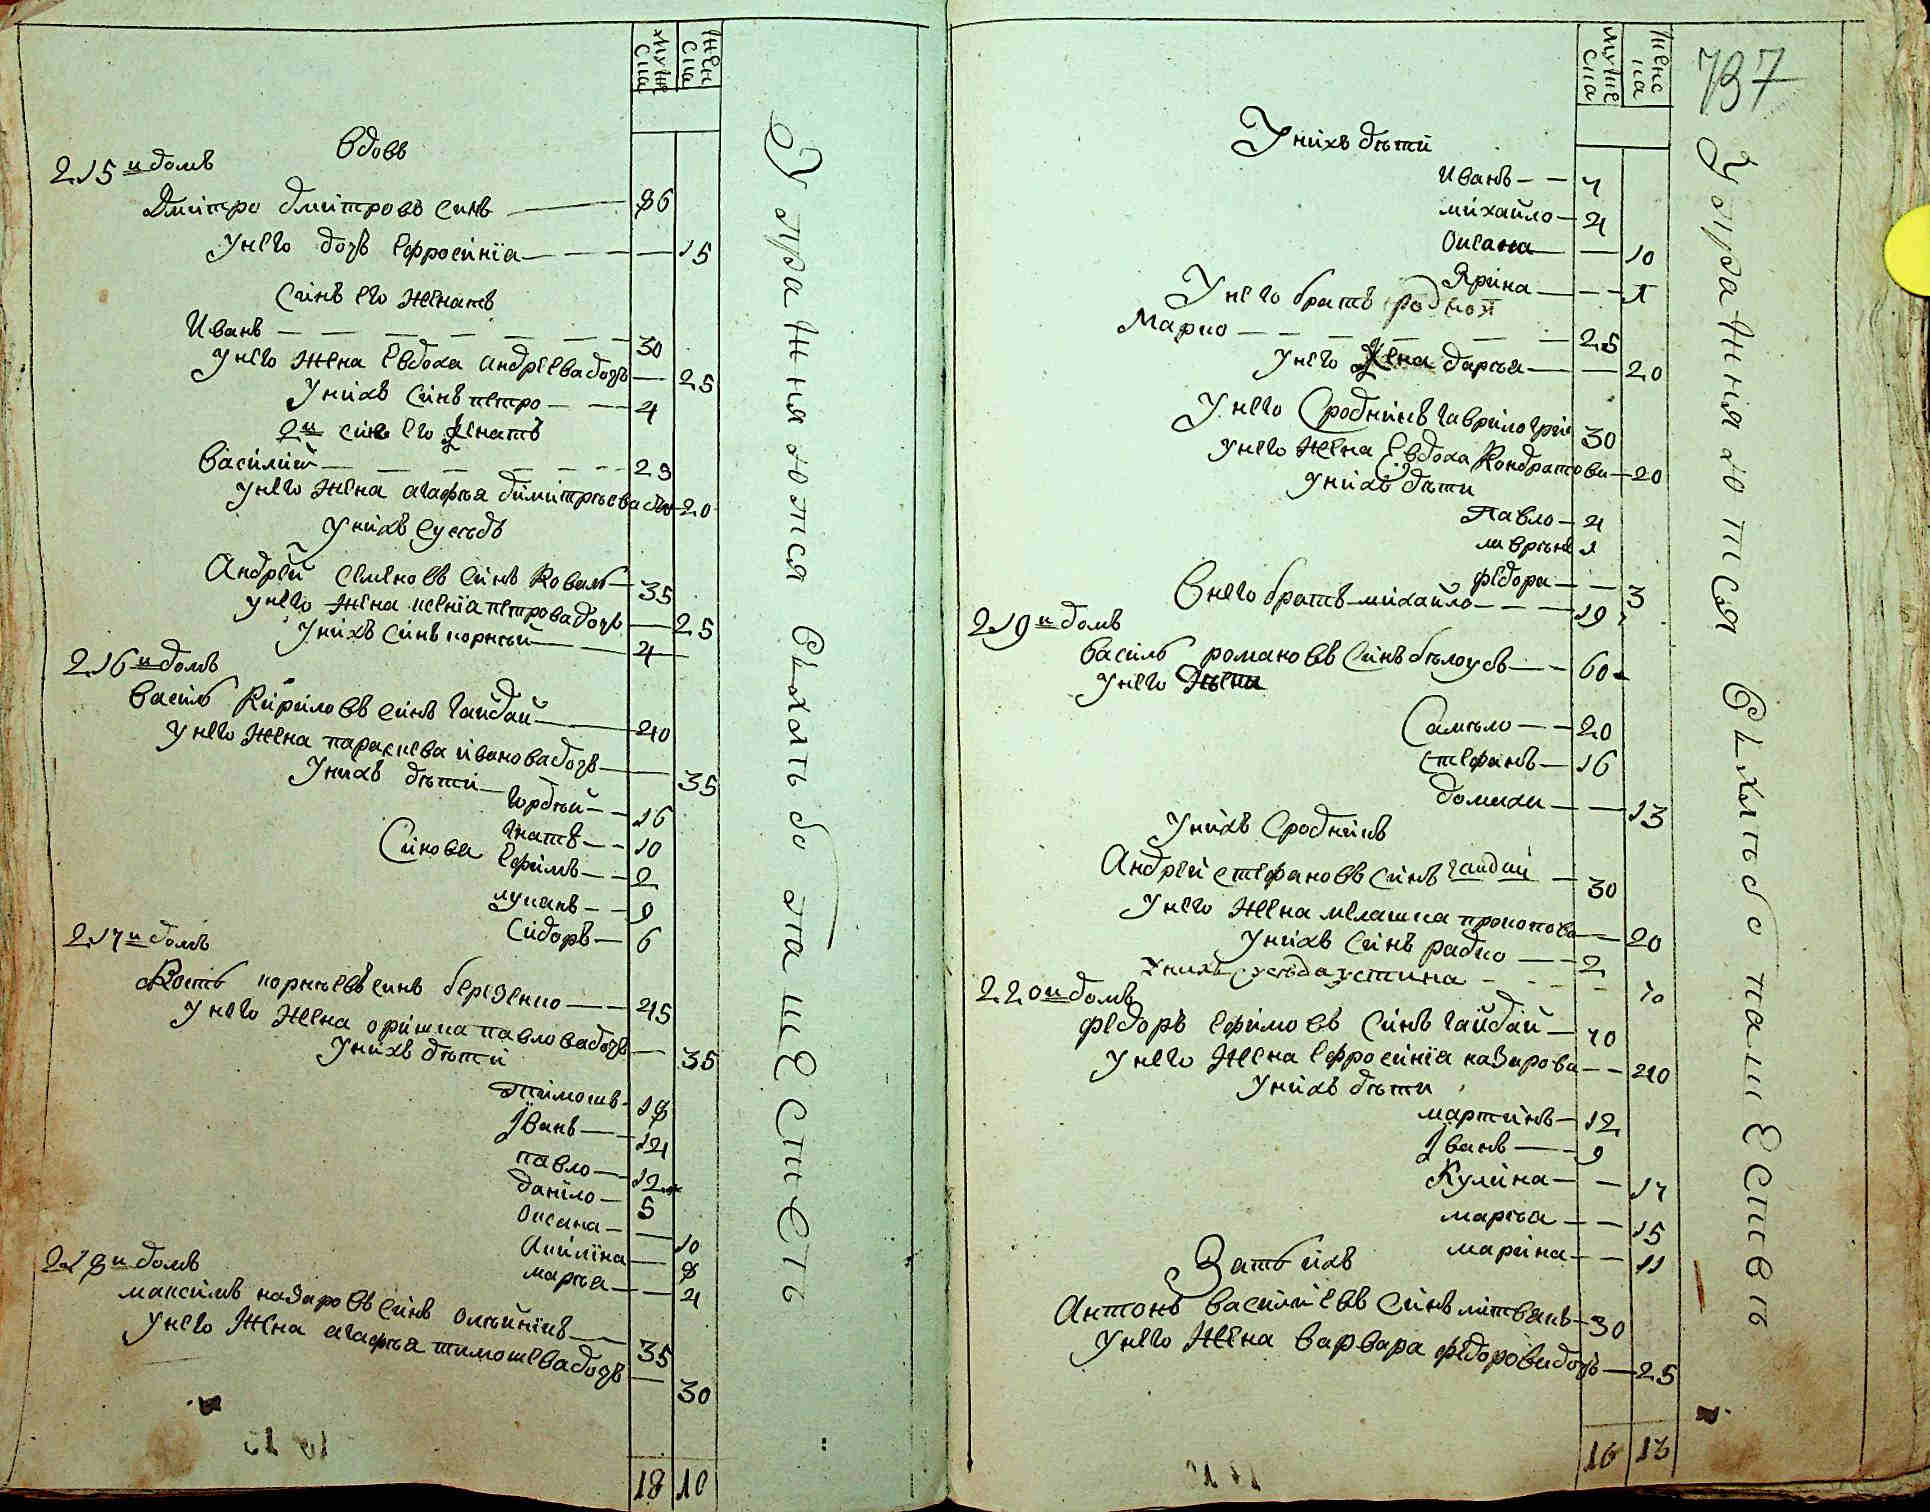 муже ска
жен ска
вдовъ
215 и домъ
Дмитро дмитровъ синъ 86
У него дочъ Ефросинїа 15
Синъ его женатъ
Иванъ 30
У него жена Евдоха андреева дочъ 25
У нихъ синъ петро 4
2и синъ его женатъ
Василий 23
У него жена агафѣа димитрѣева дочъ 20
У нихъ сусѣдъ
Андрѣй семеновъ синъ Коваль 35
У него жена ксенїа петрова дочъ 25
У нихъ синъ корнѣй 4
216 и домъ
Василь Кириловъ синъ гайдай 40
У него жена параскева иванова дочъ 35
У нихъ дѣти
гордѣй 16
Игнатъ 10
Синова Ефимъ 2
лукянъ 9
Сидоръ 6
217 и домъ
Кость корнѣевъ синъ береженко 45
У него жена оришка павлова дочъ 35
У нихъ дѣти
тимошъ 18
Іванъ 14
павло 12
данило 5
Оксана 10
Акилїна 8
марѣа 4
218 и домъ
максимъ назаровъ синъ олѣйникъ 35
У него жена агафѣа тимошева дочъ 30
18 10
Упражнняются вѣхать бо
ташестветь
737
муже ска
женс ка
У нихъ дѣти
Иванъ 7
михайло 4
Оксана 10
Ярина 1
У него братъ родной
Марко 25
У него жена дарѣа 20
У него Сродникъ гаврило гри 30
У него жена Евдоха Кондратова 20
У нихъ дѣти
Павло 4
лаврѣнъ 1
федора 3
В него братъ михайло 19
219 и домъ
Василь романовъ синъ бѣлоусъ 60
У него жена
Самѣло 20
стефанъ 16
домиха 13
У нихъ Сродникъ
Андрей стефановъ синъ гайдай 30
У него жена мелашка прокопова 20
У нихъ синъ радко 2
У нихъ сусѣда устина 70
220 и домъ
федоръ Ефимовъ синъ гайдай 70
У него жена Ефросинїа назарова 40
У нихъ дѣти
мартинъ 12
Іванъ 9
Кулина 17
марѣа 15
марина 11
Зать ихъ
Антонъ василиевъ синъ литвинъ 30
У него жена варвара федорова дочъ 25
16 13